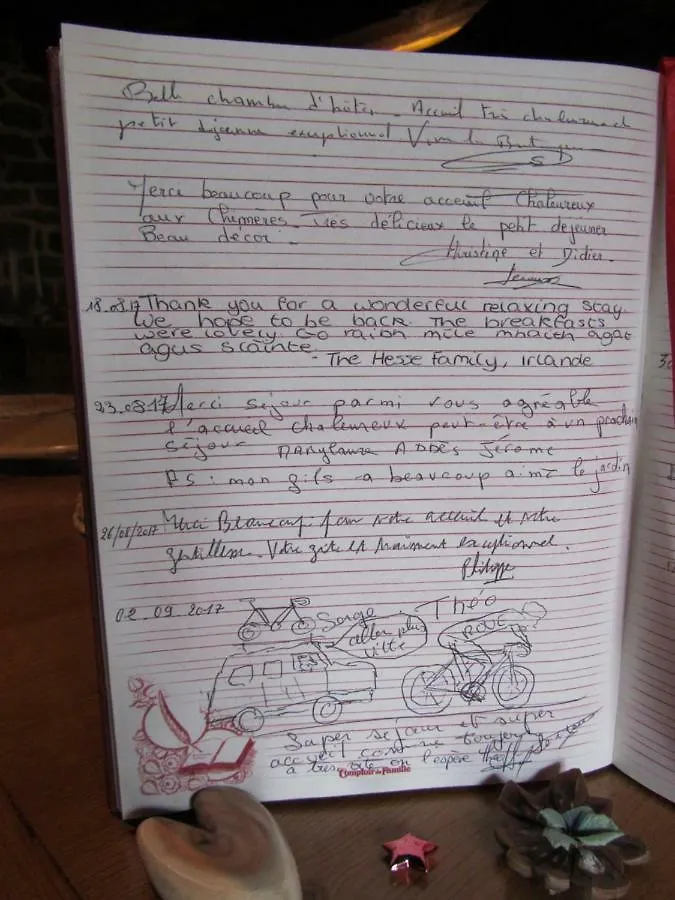 Belle chambre d'hôtes - Accueil très chaleureux
petit déjeuner exceptionnel Vive la
Merci beaucoup pour votre acceuil Chaleureux
aux Chimères - Très délicieux le petit dejeuner
Beau décor -
Christine et Didier.
18.08.17 Thank you for a wonderful relaxing stay.
We hope to be back. The breakfasts
were lovely. Go raibh míle mhaith agat
agus sláinte.
- The Hesse Family, Irlande
23.08.17 Merci séjour parmi vous agréable
l'accueil chaleureux peut-être à un prochain
séjour Jérome
PS : mon fils a beaucoup aimé le jardin
26/08/2017 Merci Beaucoup pour votre accueil et votre
gentillesse. Votre gite est vraiment exceptionnel.
Philippe
02.09.2017
Serge
Théo
aller plus
vite
Super séjour et super
accueil comme toujours
à très vite on l'espère
Comptoir de Famille